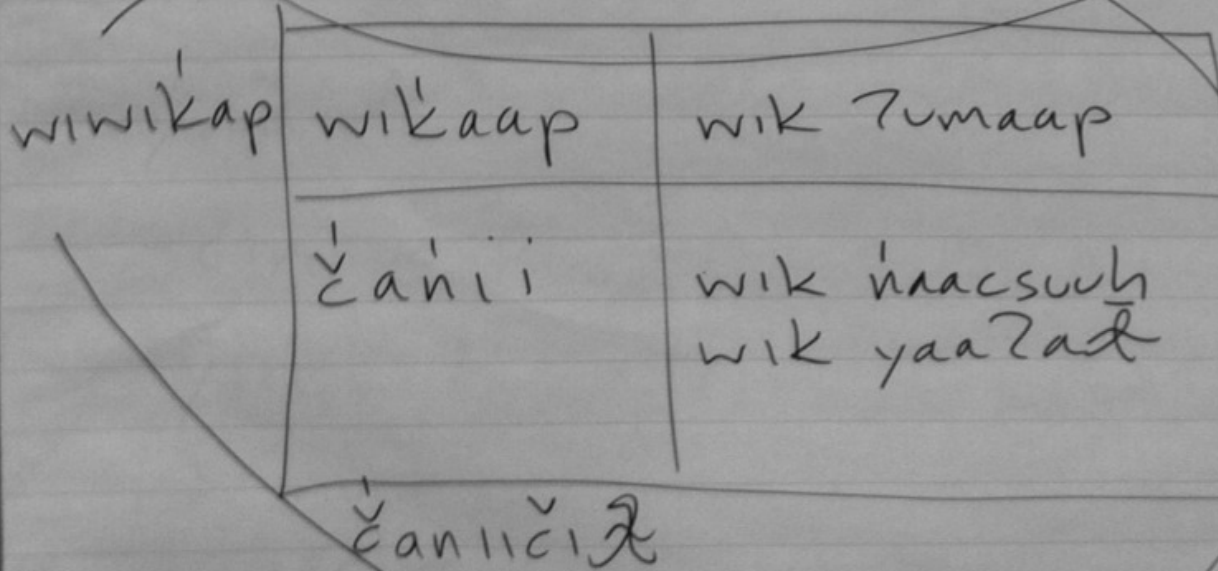 wiwik̓ap wik̓aap wik ʔumaap
č̓an̓ii wik n̓aacsuuḥ
wik yaaʔaƛ
č̓aniičiƛ